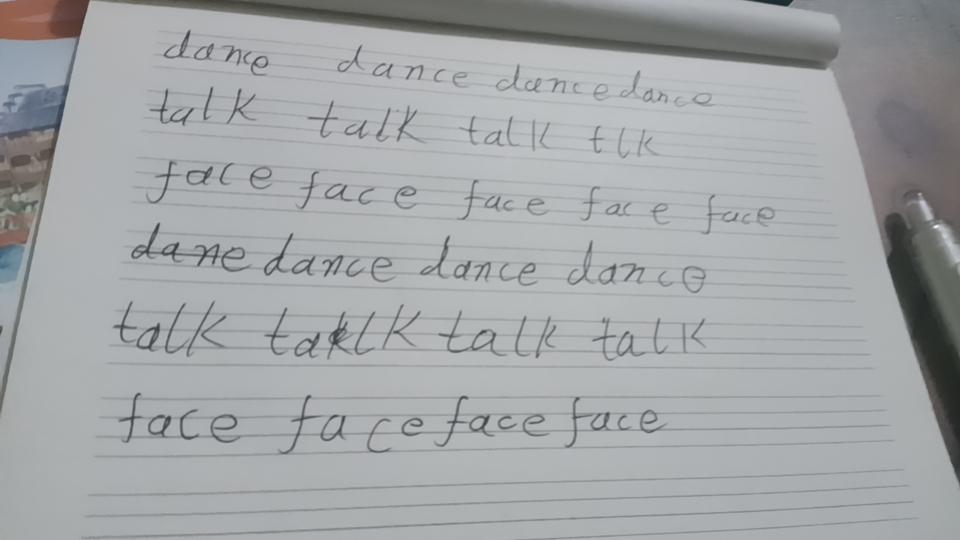 dance dance dance dance
talk talk talk tlk
face face face face face
dane dance dance dance
talk taklk talk talk
face face face face